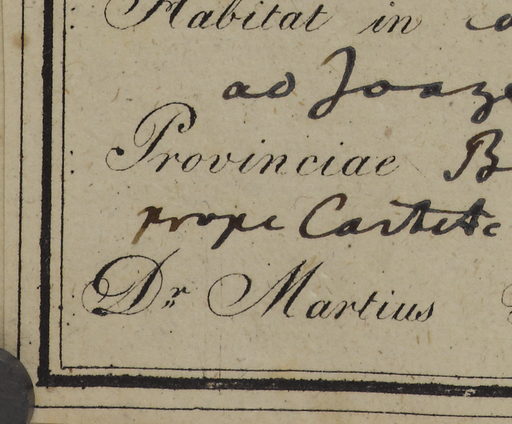 Habitat in
ad Joaze
Provinciae B
prope
Dr. Martius